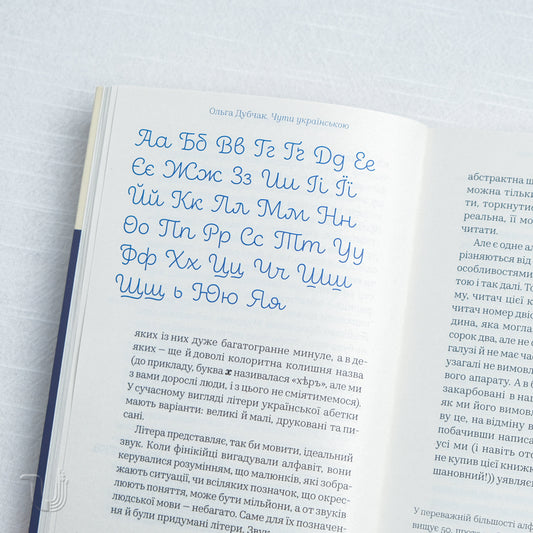 Ольга Дубчак. Чути українською
Аа Бб Вв Гг Ґґ Дд Ее
Єє Жж Зз Ии Іі Її
Йй Кк Лл Мм Нн
Оо Пп Рр Сс Тт Уу
Фф Хх Цц Чч Шш
Щщ ь Юю Яя
яких із них дуже багатогранне минуле, а в де-
яких – ще й доволі колоритна колишня назва
(до прикладу, буква х називалася «хѣръ», але ми
з вами дорослі люди, і з цього не сміятимемося).
У сучасному вигляді літери української абетки
мають варіанти: великі й малі, друковані та пи-
сані.
Літера представляє, так би мовити, ідеальний
звук. Коли фінікійці вигадували алфавіт, вони
керувалися розумінням, що малюнків, які зобра-
жають ситуації, чи всіляких позначок, що окрес-
люють поняття, може бути мільйони, а от звуків
людської мови – небагато. Саме для їх позначен-
ня й були придумані літери. Звук
абстрактна щ
можна тільки
ти, торкнутис
реальна, її мо
читати.
Але є одне ал
різняються від
особливостями
тою і так далі. То
му, читач цієї к
читач номер двіс
дина, яка могла
сорок два, але не
галузі й не має ча
узагалі не вимовл
вого апарату. А в б
закарбовані в наш
як ми його вимовл
ву це, на відміну в
побачивши написа
усі ми (і навіть ото
не купив цієї книжк
шановний!)) уявляєм
У переважній більшості алф
вищує 50, проте